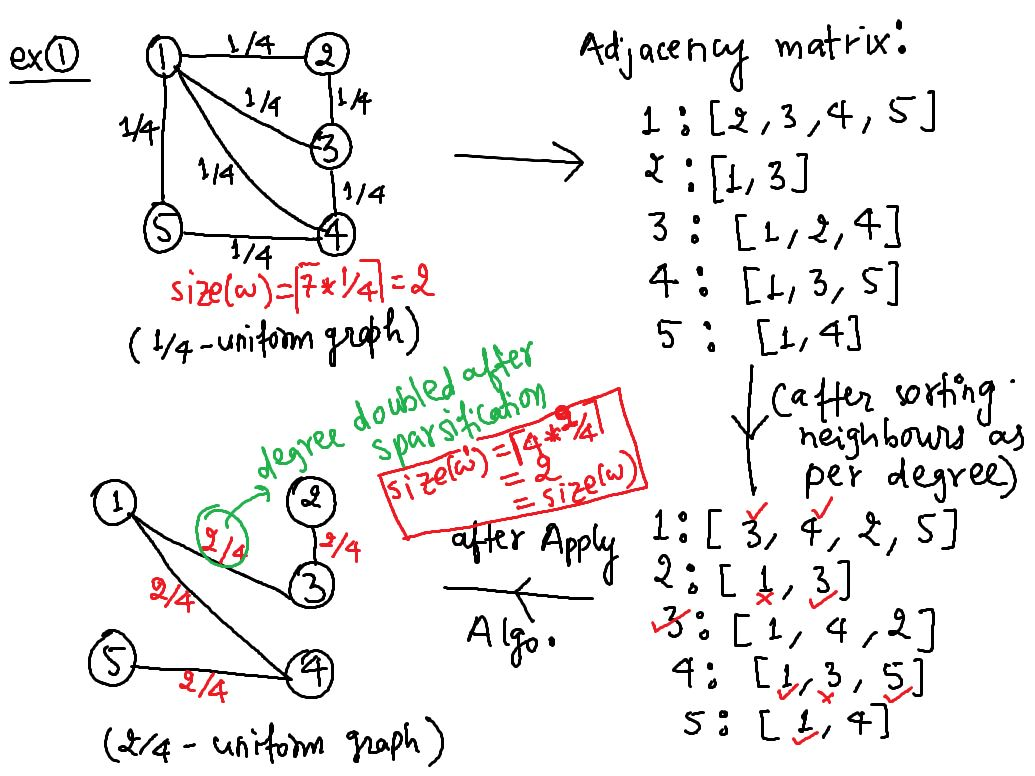 ex①
1 1/4 2
1/4 1/4 1/4
3
1/4 1/4
5 1/4 4
size(w)=⌈7*1/4⌉=2
(1/4-uniform graph)
Adjacency matrix:
1:[2,3,4,5]
2:[1,3]
3:[1,2,4]
4:[1,3,5]
5:[1,4]
(after sorting
neighbours as
per degree)
1:[3,4,2,5]
2:[1,3]
3:[1,4,2]
4:[1,3,5]
5:[1,4]
after Apply
Algo.
degree doubled after
sparsification
size(w')=⌈4*2/4⌉
=2
=size(w)
1 2
2/4 2/4
3
2/4
5 2/4 4
(2/4-uniform graph)